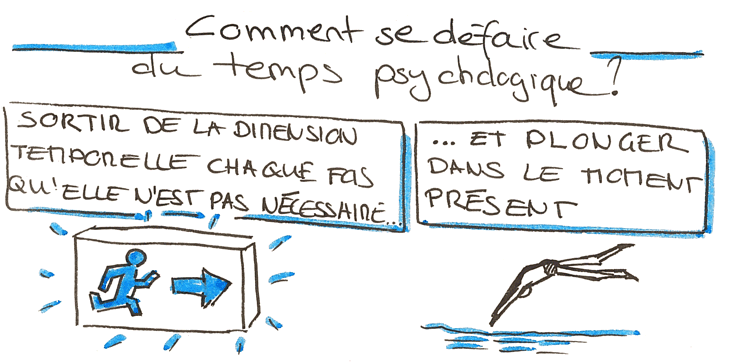 Comment se défaire
du temps psychologique ?
SORTIR DE LA DIMENSION
TEMPORELLE CHAQUE FOIS
QU'ELLE N'EST PAS NÉCESSAIRE...
... ET PLONGER
DANS LE MOMENT
PRÉSENT